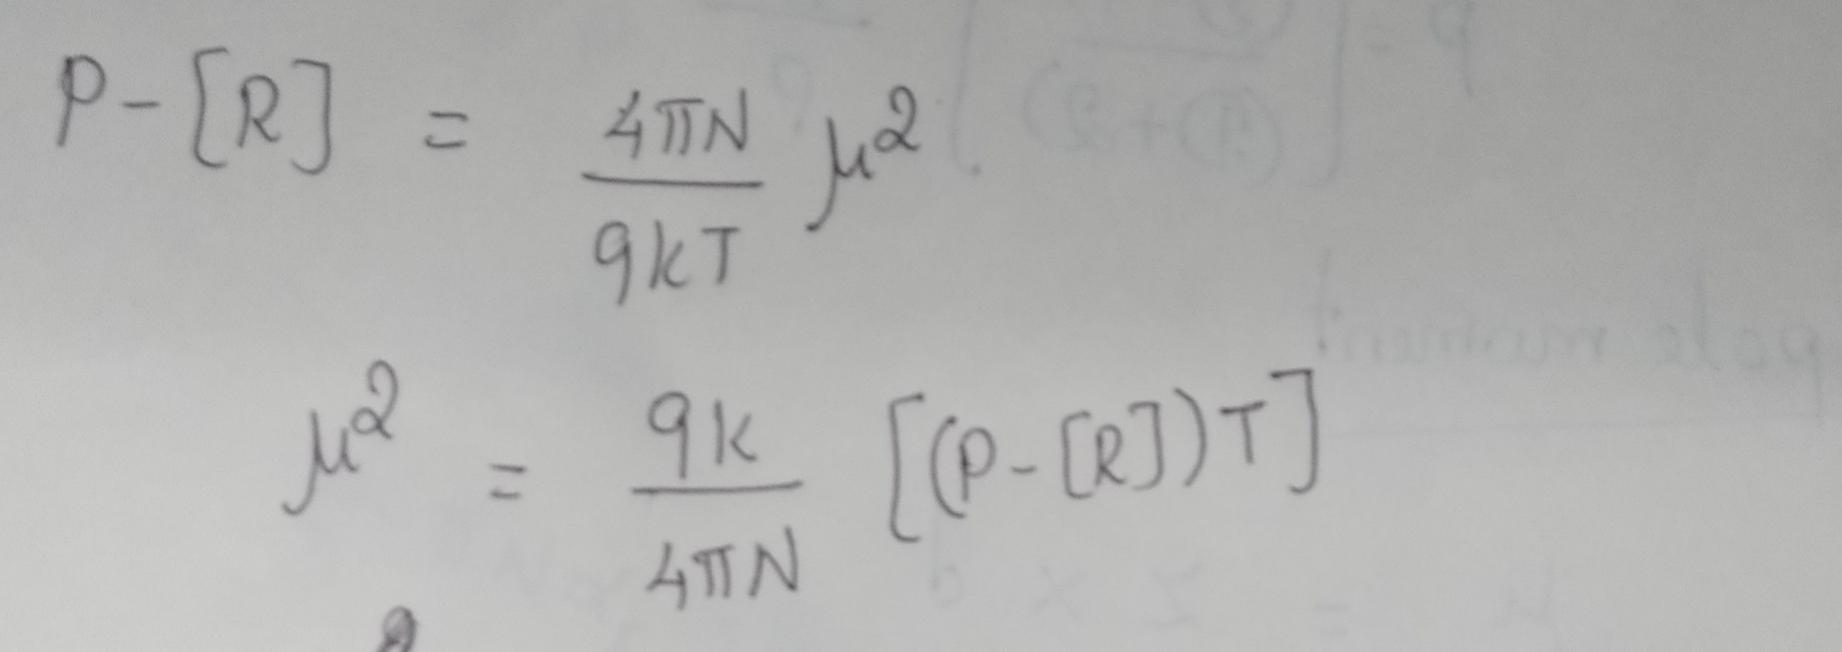 P-[R] = 4πN/9kT μ²
μ² = 9k/4πN [(P-[R])T]